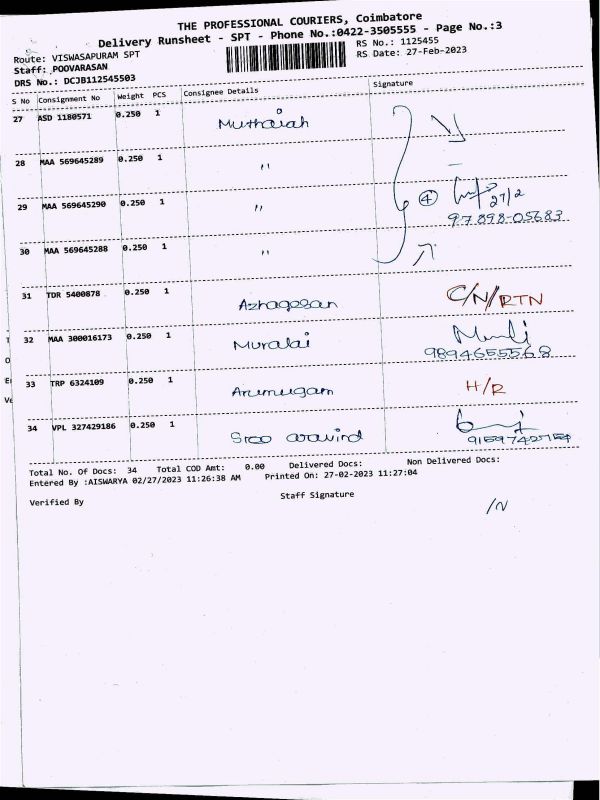 THE PROFESSIONAL COURIERS, Coimbatore
Delivery Runsheet - SPT - Phone No.:0422-3505555 - Page No.:3
Route: VISWASAPURAM SPT
RS No.: 1125455
Staff: POOVARASAN
RS Date: 27-Feb-2023
DRS No.: DCJB112545503
S No Consignment No Weight PCS Consignee Details Signature
27 ASD 1180571 0.250 1 Muthaiah
28 MAA 569645289 0.250 1 "
29 MAA 569645290 0.250 1 " 4 27/2
97898-05683
30 MAA 569645288 0.250 1 "
31 TDR 5400878 0.250 1 Azhagesan C/N/RTN
32 MAA 300016173 0.250 1 Muralai
9894655568
33 TRP 6324109 0.250 1 Arumugam H/R
34 VPL 327429186 0.250 1 Sree aravind
Total No. Of Docs: 34 Total COD Amt: 0.00 Delivered Docs: Non Delivered Docs:
Entered By :AISWARYA 02/27/2023 11:26:38 AM Printed On: 27-02-2023 11:27:04
Verified By Staff Signature
/N